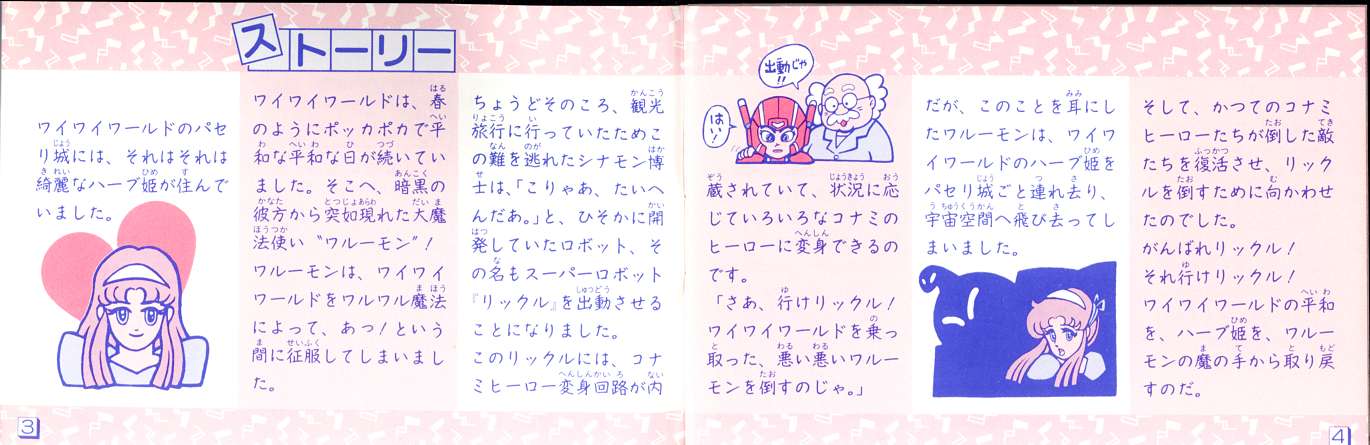 ストーリー
ワイワイワールドのパセ
リ城には、それはそれは
綺麗なハーブ姫が住んで
いました。
ワイワイワールドは、春
のようにポッカポカで平
和な平和な日が続いてい
ました。そこへ、暗黒の
彼方から突如現れた大魔
法使い“ワルーモン”！
ワルーモンは、ワイワイ
ワールドをワルワル魔法
によって、あっ！という
間に征服してしまいまし
た。
ちょうどそのころ、観光
旅行に行っていたためこ
の難を逃れたシナモン博
士は、「こりゃあ、たいへ
んだあ。」と、ひそかに開
発していたロボット、そ
の名もスーパーロボット
『リックル』を出動させる
ことになりました。
このリックルには、コナ
ミヒーロー変身回路が内
3
出動じゃ
!!
はい!
蔵されていて、状況に応
じていろいろなコナミの
ヒーローに変身できるの
です。
「さあ、行けリックル！
ワイワイワールドを乗っ
取った、悪い悪いワルー
モンを倒すのじゃ。」
だが、このことを耳にし
たワルーモンは、ワイワ
イワールドのハーブ姫を
パセリ城ごと連れ去り、
宇宙空間へ飛び去ってし
まいました。
そして、かつてのコナミ
ヒーローたちが倒した敵
たちを復活させ、リック
ルを倒すために向かわせ
たのでした。
がんばれリックル！
それ行けリックル！
ワイワイワールドの平和
を、ハーブ姫を、ワルー
モンの魔の手から取り戻
すのだ。
4